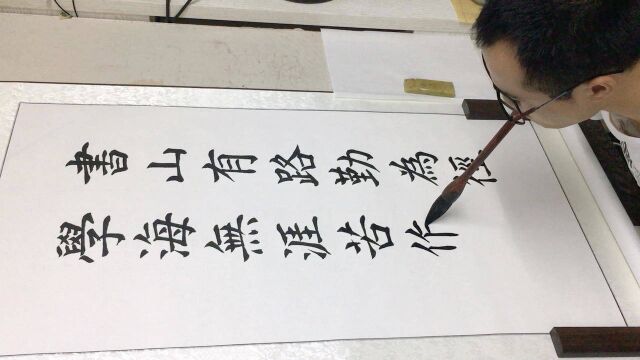 書山有路勤為徑
學海無涯苦作